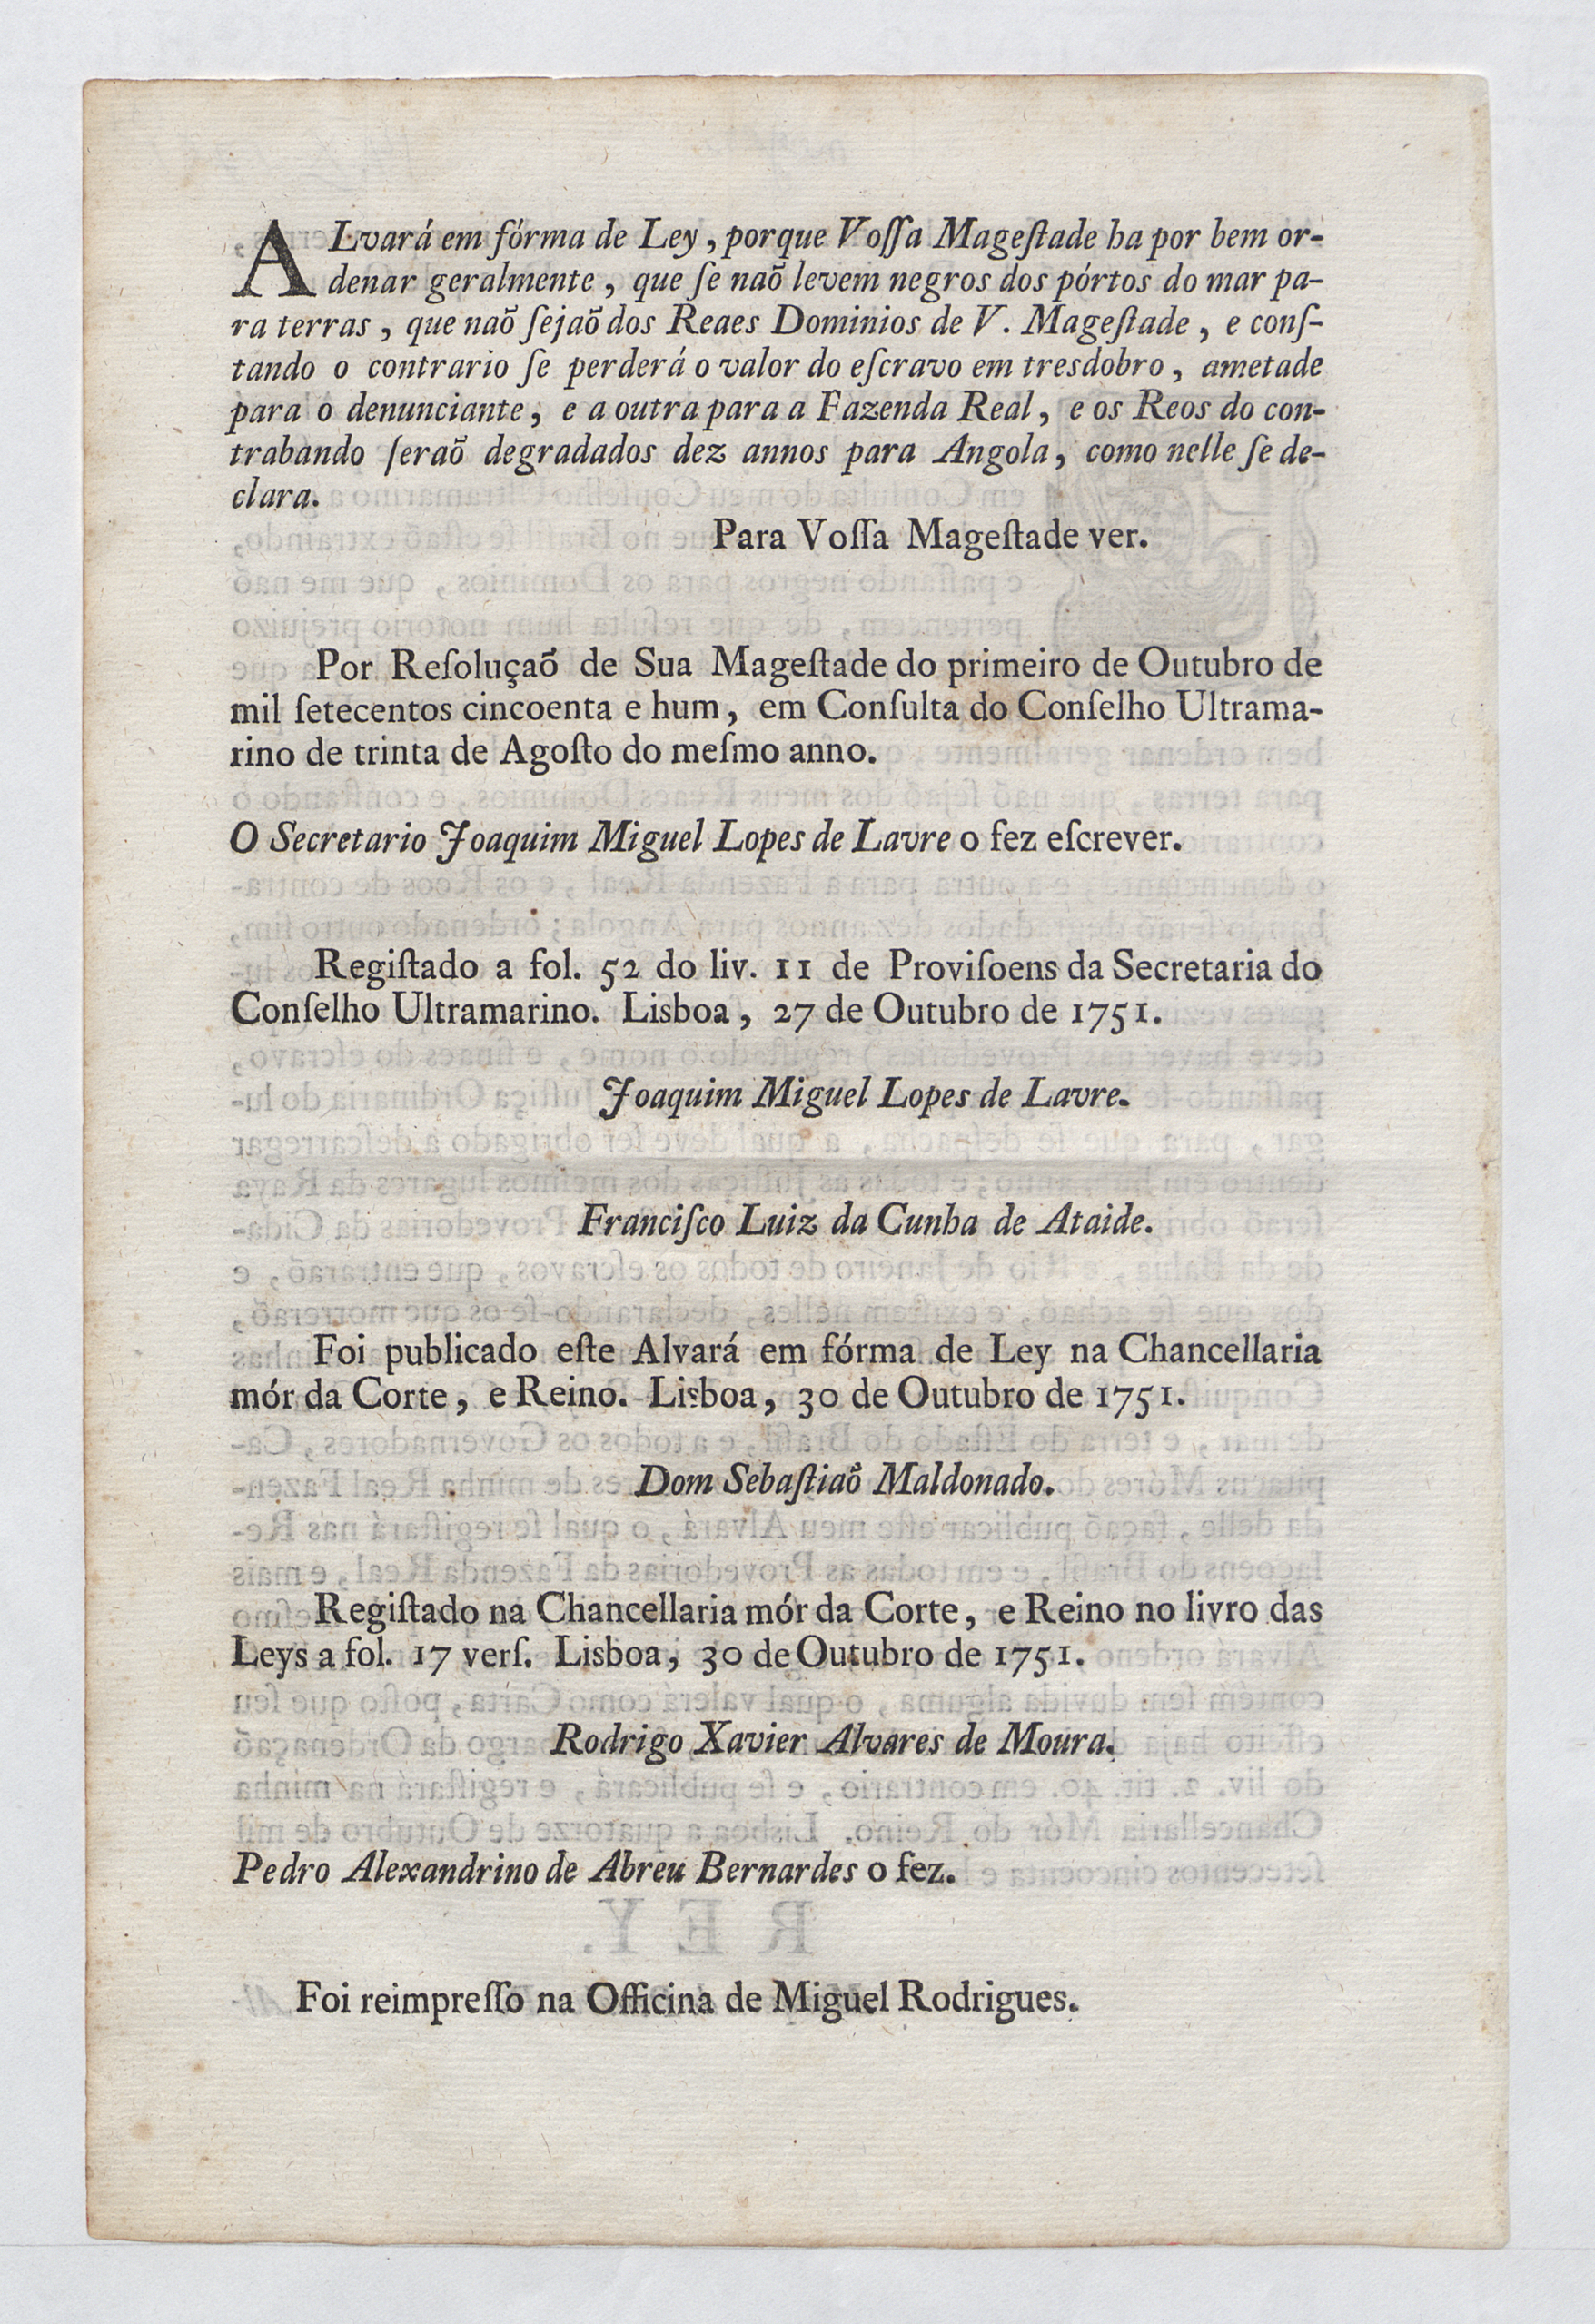 ALvará em fórma de Ley, porque Voſſa Mageſtade ha por bem or-
denar geralmente, que ſe naõ levem negros dos pórtos do mar pa-
ra terras, que naõ ſejaõ dos Reaes Dominios de V. Mageſtade, e conſ-
tando o contrario ſe perderá o valor do eſcravo em tresdobro, ametade
para o denunciante, e a outra para a Fazenda Real, e os Reos do con-
trabando ſeraõ degradados dez annos para Angola, como nelle ſe de-
clara.
Para Voſſa Mageſtade ver.
Por Reſoluçaõ de Sua Mageſtade do primeiro de Outubro de
mil ſetecentos cincoenta e hum, em Conſulta do Conſelho Ultrama-
rino de trinta de Agoſto do meſmo anno.
O Secretario Joaquim Miguel Lopes de Lavre o fez eſcrever.
Regiſtado a fol. 52 do liv. 11 de Proviſoens da Secretaria do
Conſelho Ultramarino. Lisboa, 27 de Outubro de 1751.
Joaquim Miguel Lopes de Lavre.
Franciſco Luiz da Cunha de Ataide.
Foi publicado eſte Alvará em fórma de Ley na Chancellaria
mór da Corte, e Reino. Lisboa, 30 de Outubro de 1751.
Dom Sebaſtiaõ Maldonado.
Regiſtado na Chancellaria mór da Corte, e Reino no livro das
Leys a fol. 17 verſ. Lisboa, 30 de Outubro de 1751.
Rodrigo Xavier Alvares de Moura.
Pedro Alexandrino de Abreu Bernardes o fez.
Foi reimpreſſo na Officina de Miguel Rodrigues.